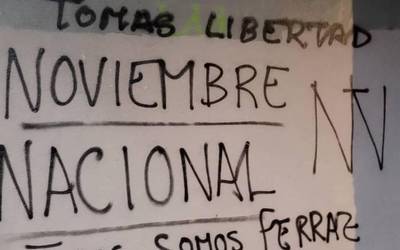 TOMAS LIBERTAD
NOVIEMBRE
NACIONAL
SOMOS FERRAZ